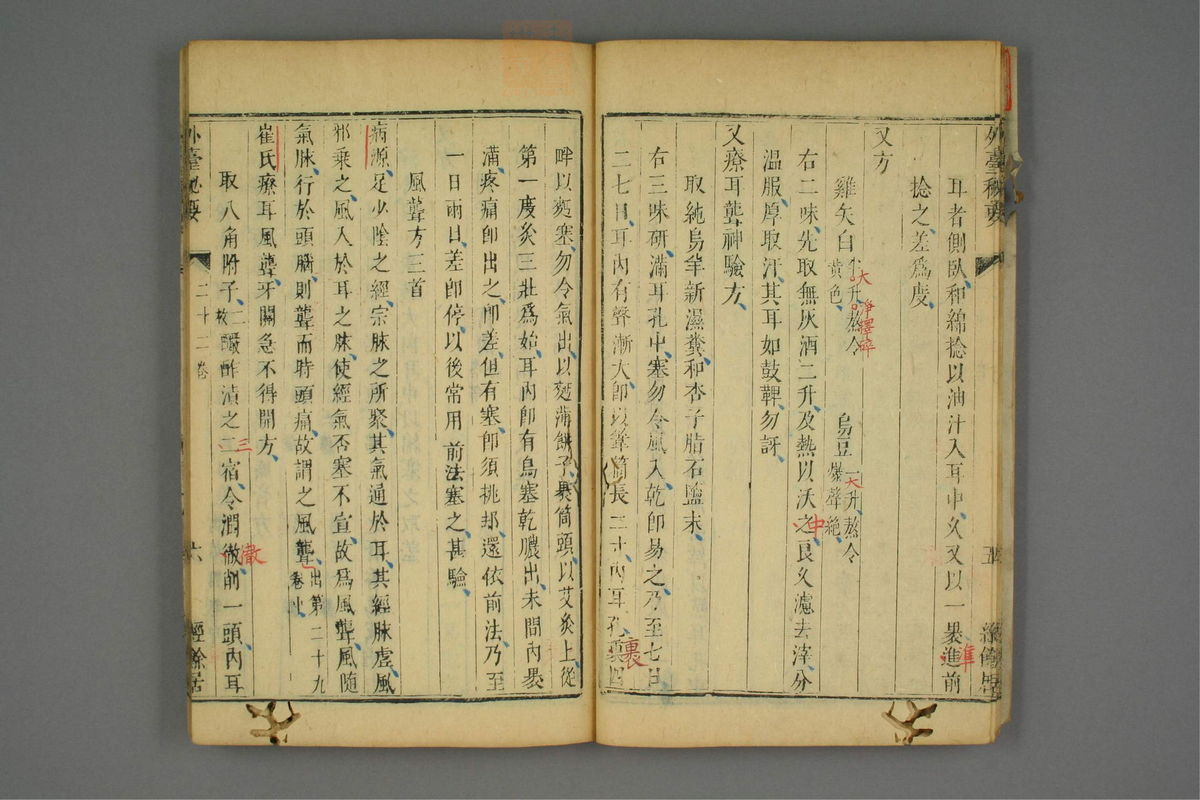 外臺秘要
耳者側臥和綿捻以油汁入耳中久又以一裹進前
捻之差爲度
又方
雞矢白半升熬令黄色 烏豆一升熬令爆聲絶
大
淨擇碎
大
右二味先取無灰酒二升及熱以沃之良久濾去滓分
中
温服厚取汗其耳如鼓鞞勿訝
又療耳聾神驗方
取純烏羊新濕糞和杏子脂石鹽末
右三味研滿耳孔中塞勿令風入乾即易之乃至七日
二七日耳内有聲漸大即以葦筒長二寸内耳孔裏四
裏
畔以麪塞勿令氣出以麪薄餅子裹筒頭以艾灸上從
第一度灸三壯爲始耳内即有烏塞乾膿出未間内裹
滿疼痛即出之即差但有塞即須挑却還依前法乃至
一日兩日差即停以後常用前法塞之甚驗
風聾方三首
病源足少陰之經宗脉之所聚其氣通於耳其經脉虚風
邪乗之風入於耳之脉使經氣否塞不宣故爲風聾風隨
氣脉行於頭腦則聾而時頭痛故謂之風聾出第二十九卷中
崔氏療耳風聾牙關急不得開方
取八角附子二枚釅酢漬之二宿令潤徹削一頭内耳
三
徹
外臺秘要
二十二卷
六
經餘居